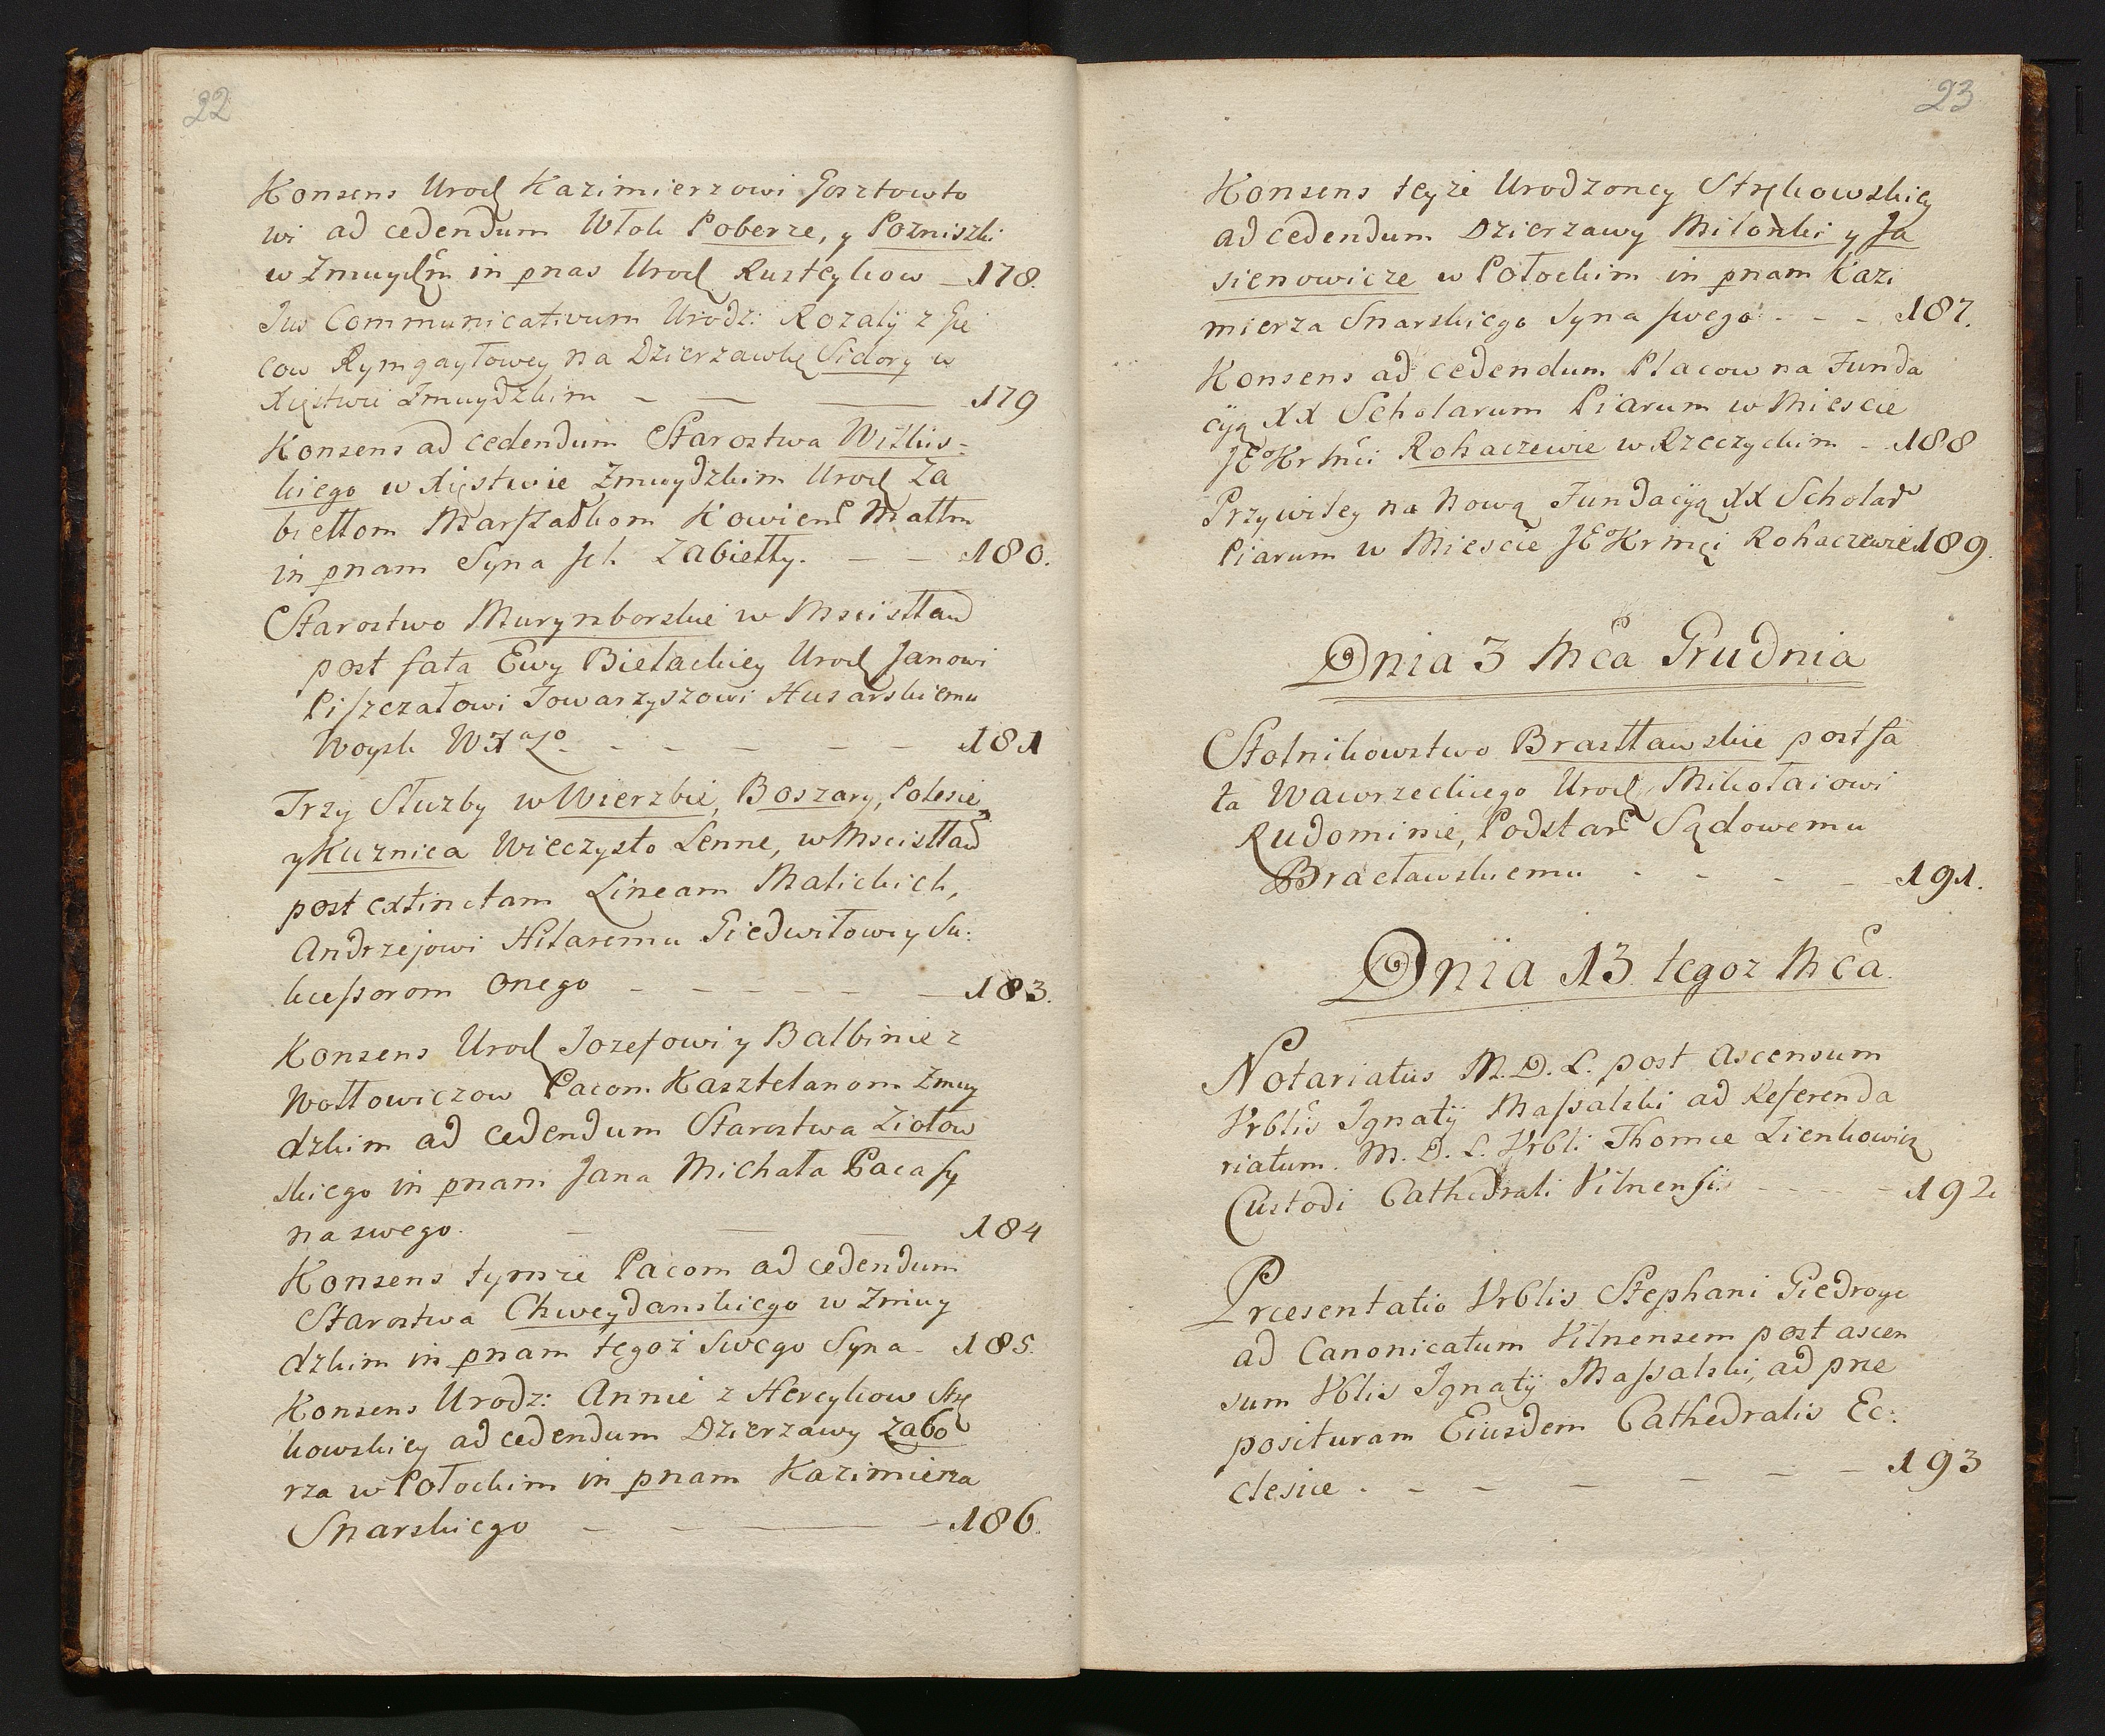 22
Konsens Urod Kazimierzowi Gosztowto
wi ad cedendum Włok Poberze, y Pozniszki
w Zmuydm in pnas Urod Rusteykow 178.
Ius Communicativum Urodz: Rozalij z Gie
cow Rymgayłowey na Dzierzawkę Sidory w
Xięstwie Zmuydzkim 179
Konsens ad cedendum Starostwa Wizkis=
kiego w Xięstwie Zmuydzkim Urod Za
biettom Marszałkom Kowien Małtm
in pnam Syna ich Zabietty. 180.
Starostwo Murynborskie w Mscisttaw
post fata Ewy Bielackiey Urod Janowi
Piszczałowi Towarzyszowi Husarskiemu
Woysk WXaLo 181
Trzy Służby w Wierzbie, Boszary, Polesie,
y Kuznica Wieczysto Lenne, w Mscisttaw
post extinctam Lineam Malickich,
Andrzejowi Hilaremu Giedwiłowi y Su:
kcessorom Onego 183.
Konsens Urod Iozefowi y Balbinie z
Wołłowiczow Pacom Kasztelanom Zmuy
dzkim ad cedendum Starostwa Ziołow
skiego in pnam Jana Michała Paca Sy
na swego. 184
Konsens tymże Pacom ad cedendum
Starostwa Chweydanskiego w Zmuy
dzkim in pnam tegoż Swego Syna 185.
Konsens Urodz: Annie z Hercykow Strę
kowskiey ad cedendum Dzierzawy Zabo
rza w Połockim in pnam Kazimierza
Snarskiego 186.
23
Konsens teyże Urodzoney Strękowskiey
ad cedendum Dzierzawy Milonki y Ja
sienowicze w Połockim in pnam Kazi
mierza Snarskiego Syna swego 187.
Konsens ad cedendum Placow na Funda
cyą XX Scholarum Piarum w Miescie
JEoKrMci Rohaczewie w Rzeczyckim 188
Przywiley na Nową Fundacyą XX Scholar
Piarum w Miescie JEoKrmci Rohaczewie 189.
Dnia 3 Mca Grudnia
Stolnikowstwo Brasttawskie post fa
ta Wawrzeckiego Urod Mikołaiowi
Rudominie, Podstar Sądowemu
Bracławskiemu 191.
Dnia 13 tegoz Mca
Notariatus M.D.L. post Ascensum
Vrblis Ignatij Massalski ad Referenda
riatum M.D.L. Vrbli Thomæ Zienkowicz
Custodi Cathedrali Vilnensi 192
Præsentatio Vrblis Stephani Giedroyc
ad Canonicatum Vilnensem post ascen
sum Vblis Ignatij Massalski, ad præ
posituram Eiusdem Cathedralis Ec:
clesiæ 193